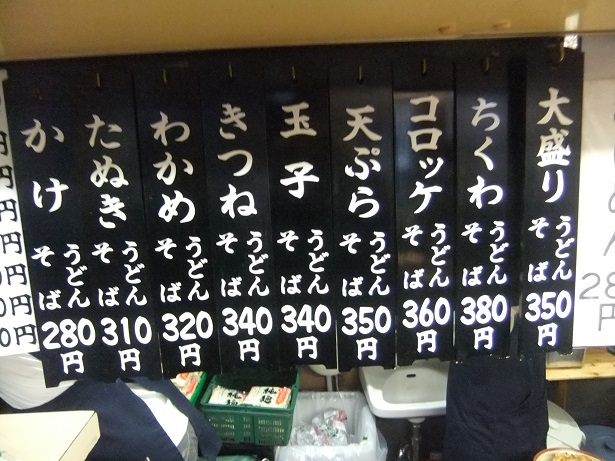 大盛り うどん そば 350円
ちくわ うどん そば 380円
コロッケ うどん そば 360円
天ぷら うどん そば 350円
玉子 うどん そば 340円
きつね うどん そば 340円
わかめ うどん そば 320円
たぬき うどん そば 310円
かけ うどん そば 280円